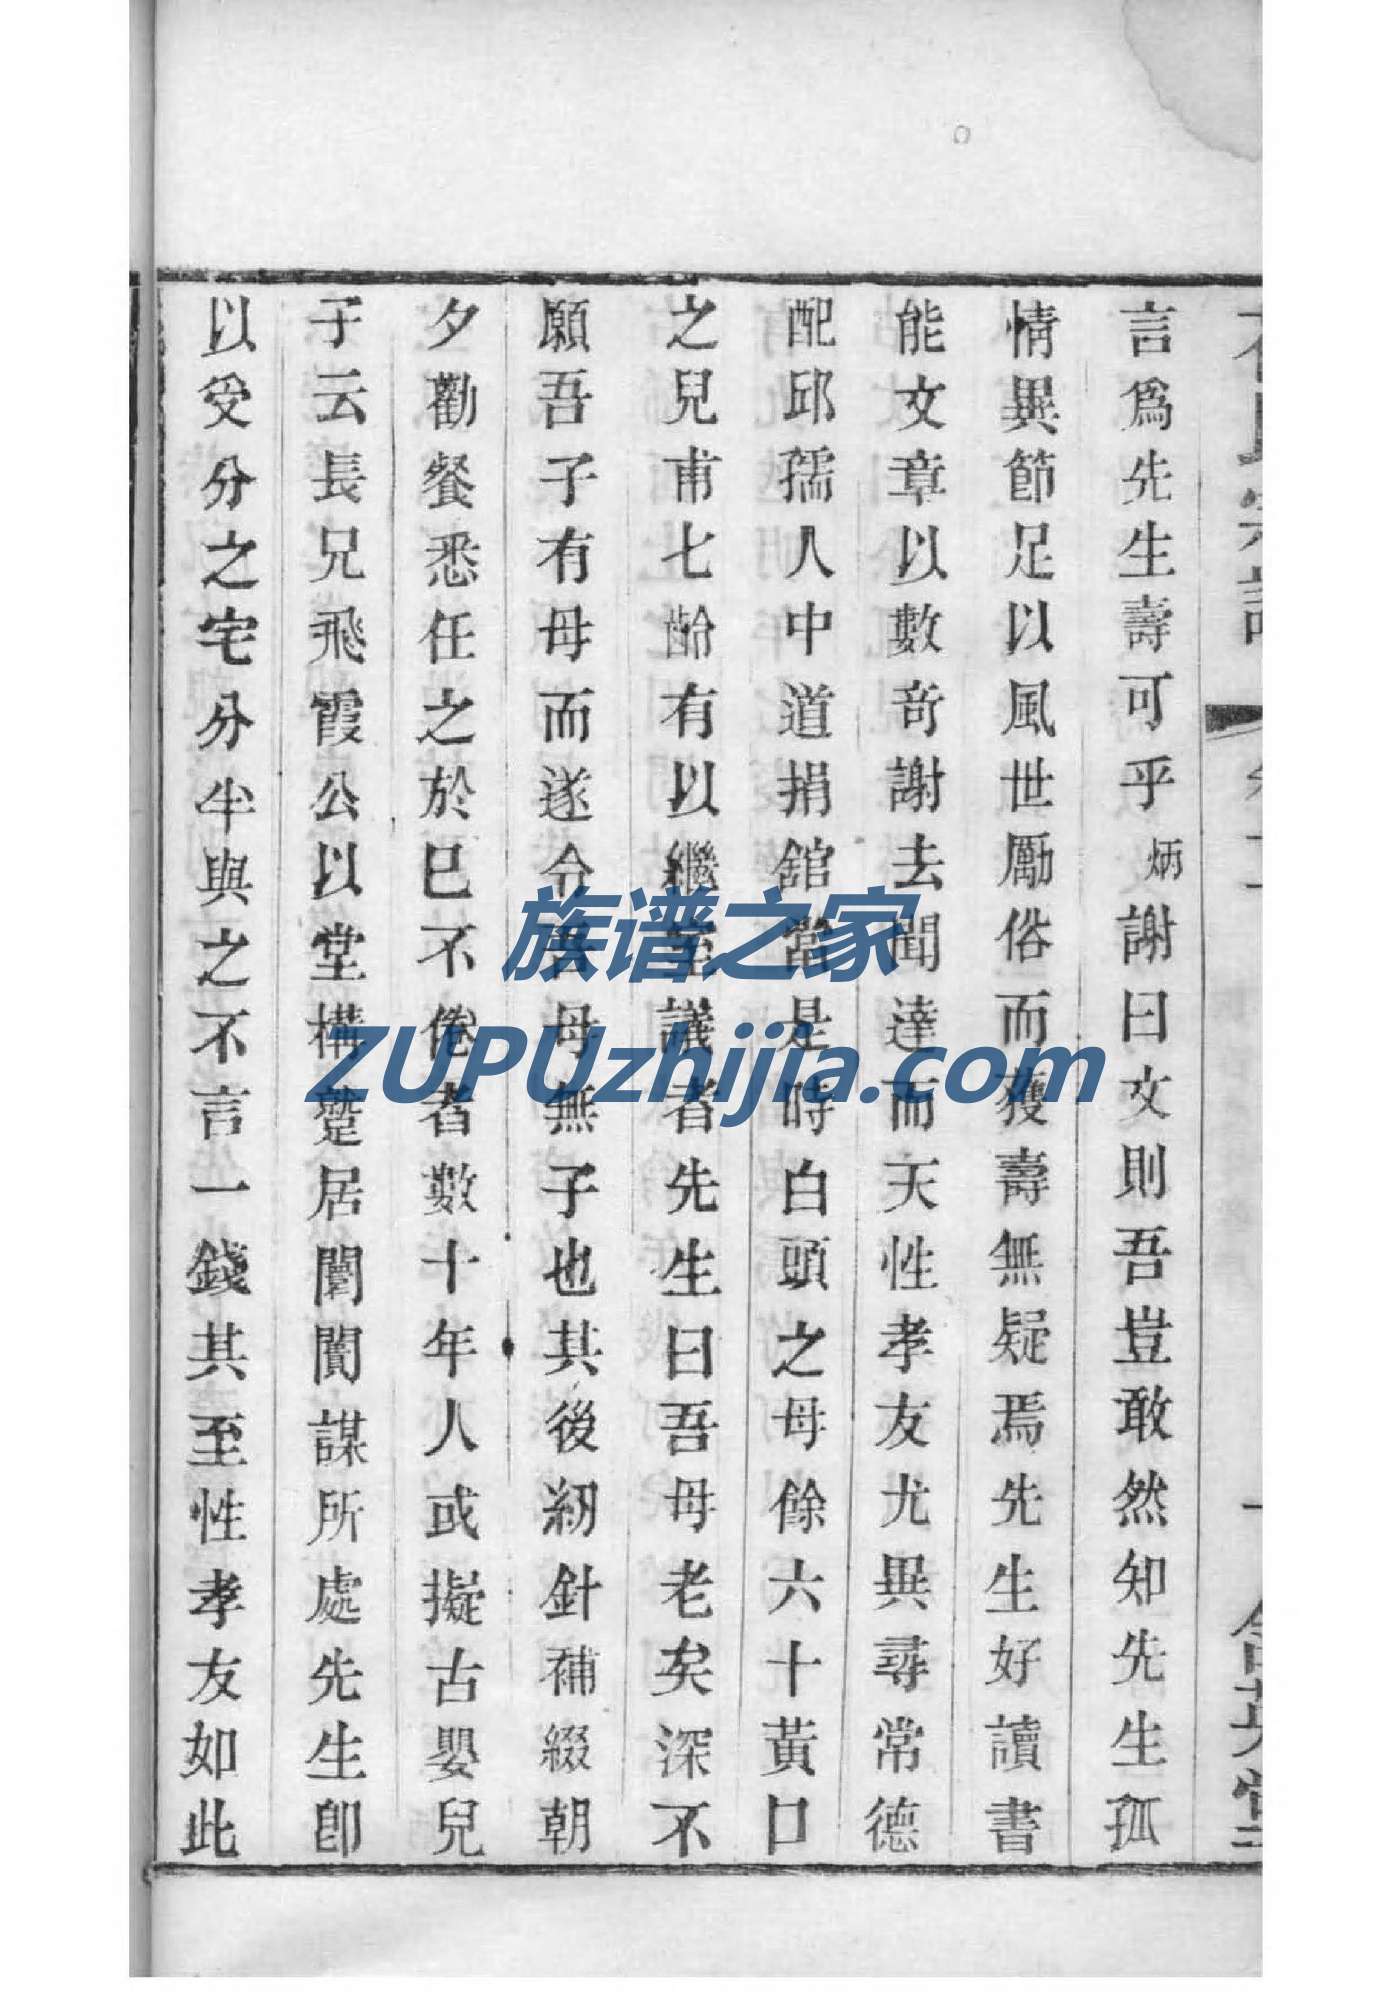 言爲先生壽可乎炳謝曰文則吾豈敢然知先生孤
情異節足以風世厲俗而獲壽無疑焉先生好讀書
能文章以數奇謝去聞達而天性孝友尤異尋常德
配邱孺人中道捐舘當是時白頭之母餘六十黃口
之兒甫七齡有以繼室議者先生曰吾母老矣深不
願吾子有母而遂令吾母無子也其後紉針補綴朝
夕勸餐悉任之於已不倦者數十年人或擬古嬰兒
子云長兄飛霞公以堂構蹔居闤闠謀所處先生卽
以受分之宅分半與之不言一錢其至性孝友如此
族谱之家
ZUPUzhijia.com